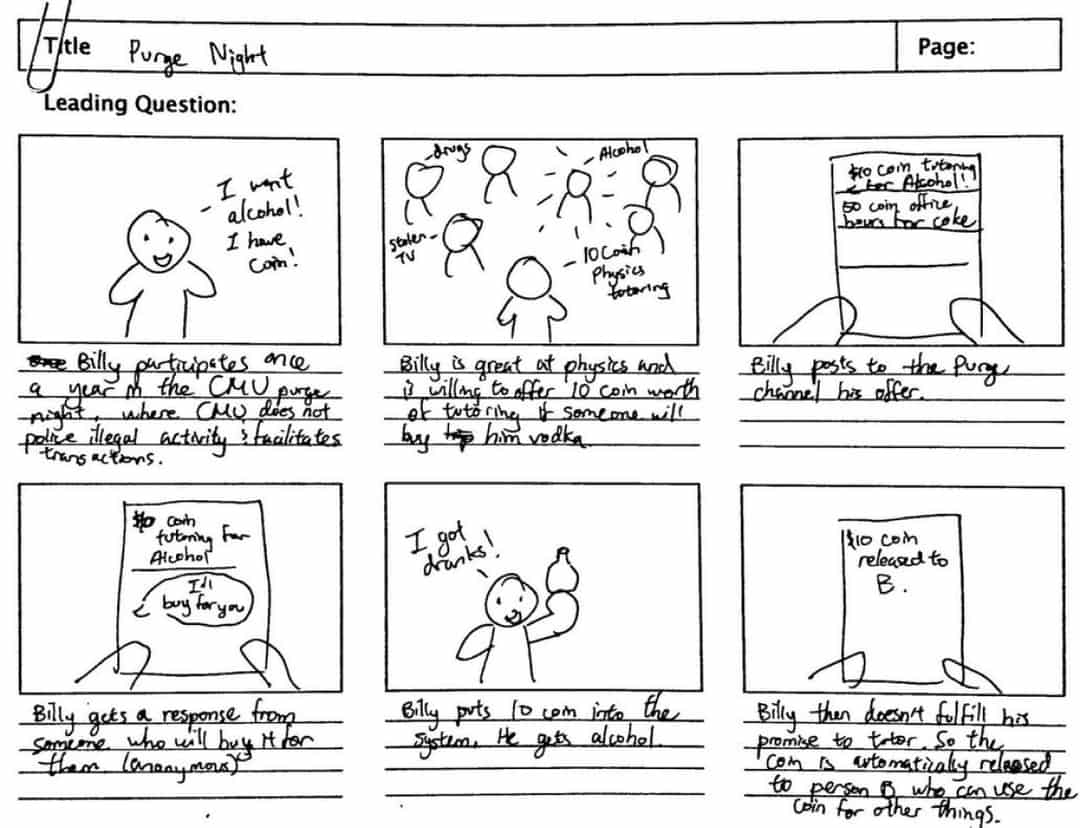 Title Purge Night
Page:
Leading Question:
- I want
alcohol!
I have
coin!
Billy participates once
a year in the CMU purge
night, where CMU does not
police illegal activity & facilitates
transactions.
drugs
Alcohol
stolen
TV
10 Coin
Physics
tutoring
Billy is great at physics and
is willing to offer 10 coin worth
of tutoring if someone will
buy him vodka.
$10 coin tutoring
for Alcohol!
50 coin office
hours for coke
Billy posts to the Purge
channel his offer.
$10 coin
tutoring for
Alcohol
I'll
buy for you
Billy gets a response from
someone who will buy it for
them (anonymous)
I got
dranks!
Billy puts 10 coin into the
system. He gets alcohol.
$10 coin
released to
B.
Billy then doesn't fulfill his
promise to tutor. So the
coin is automatically released
to person B who can use the
coin for other things.